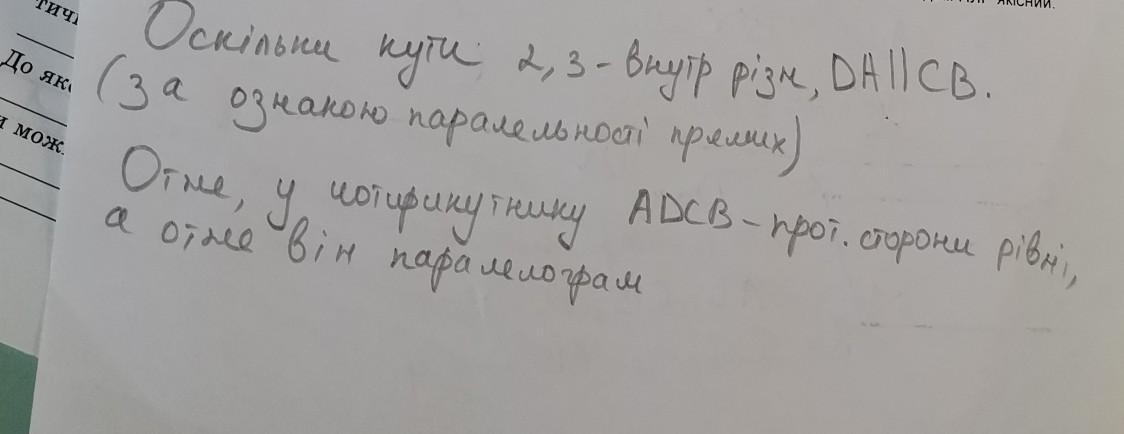 тичн
ЯКІСНИЙ.
До яко
и мож
Оскільки кути 2,3-внутр різн, DA||CB.
(За ознакою паралельності прямих)
Отже, у чотирикутнику ADCB-прот. сторони рівні,
а отже він паралелограм